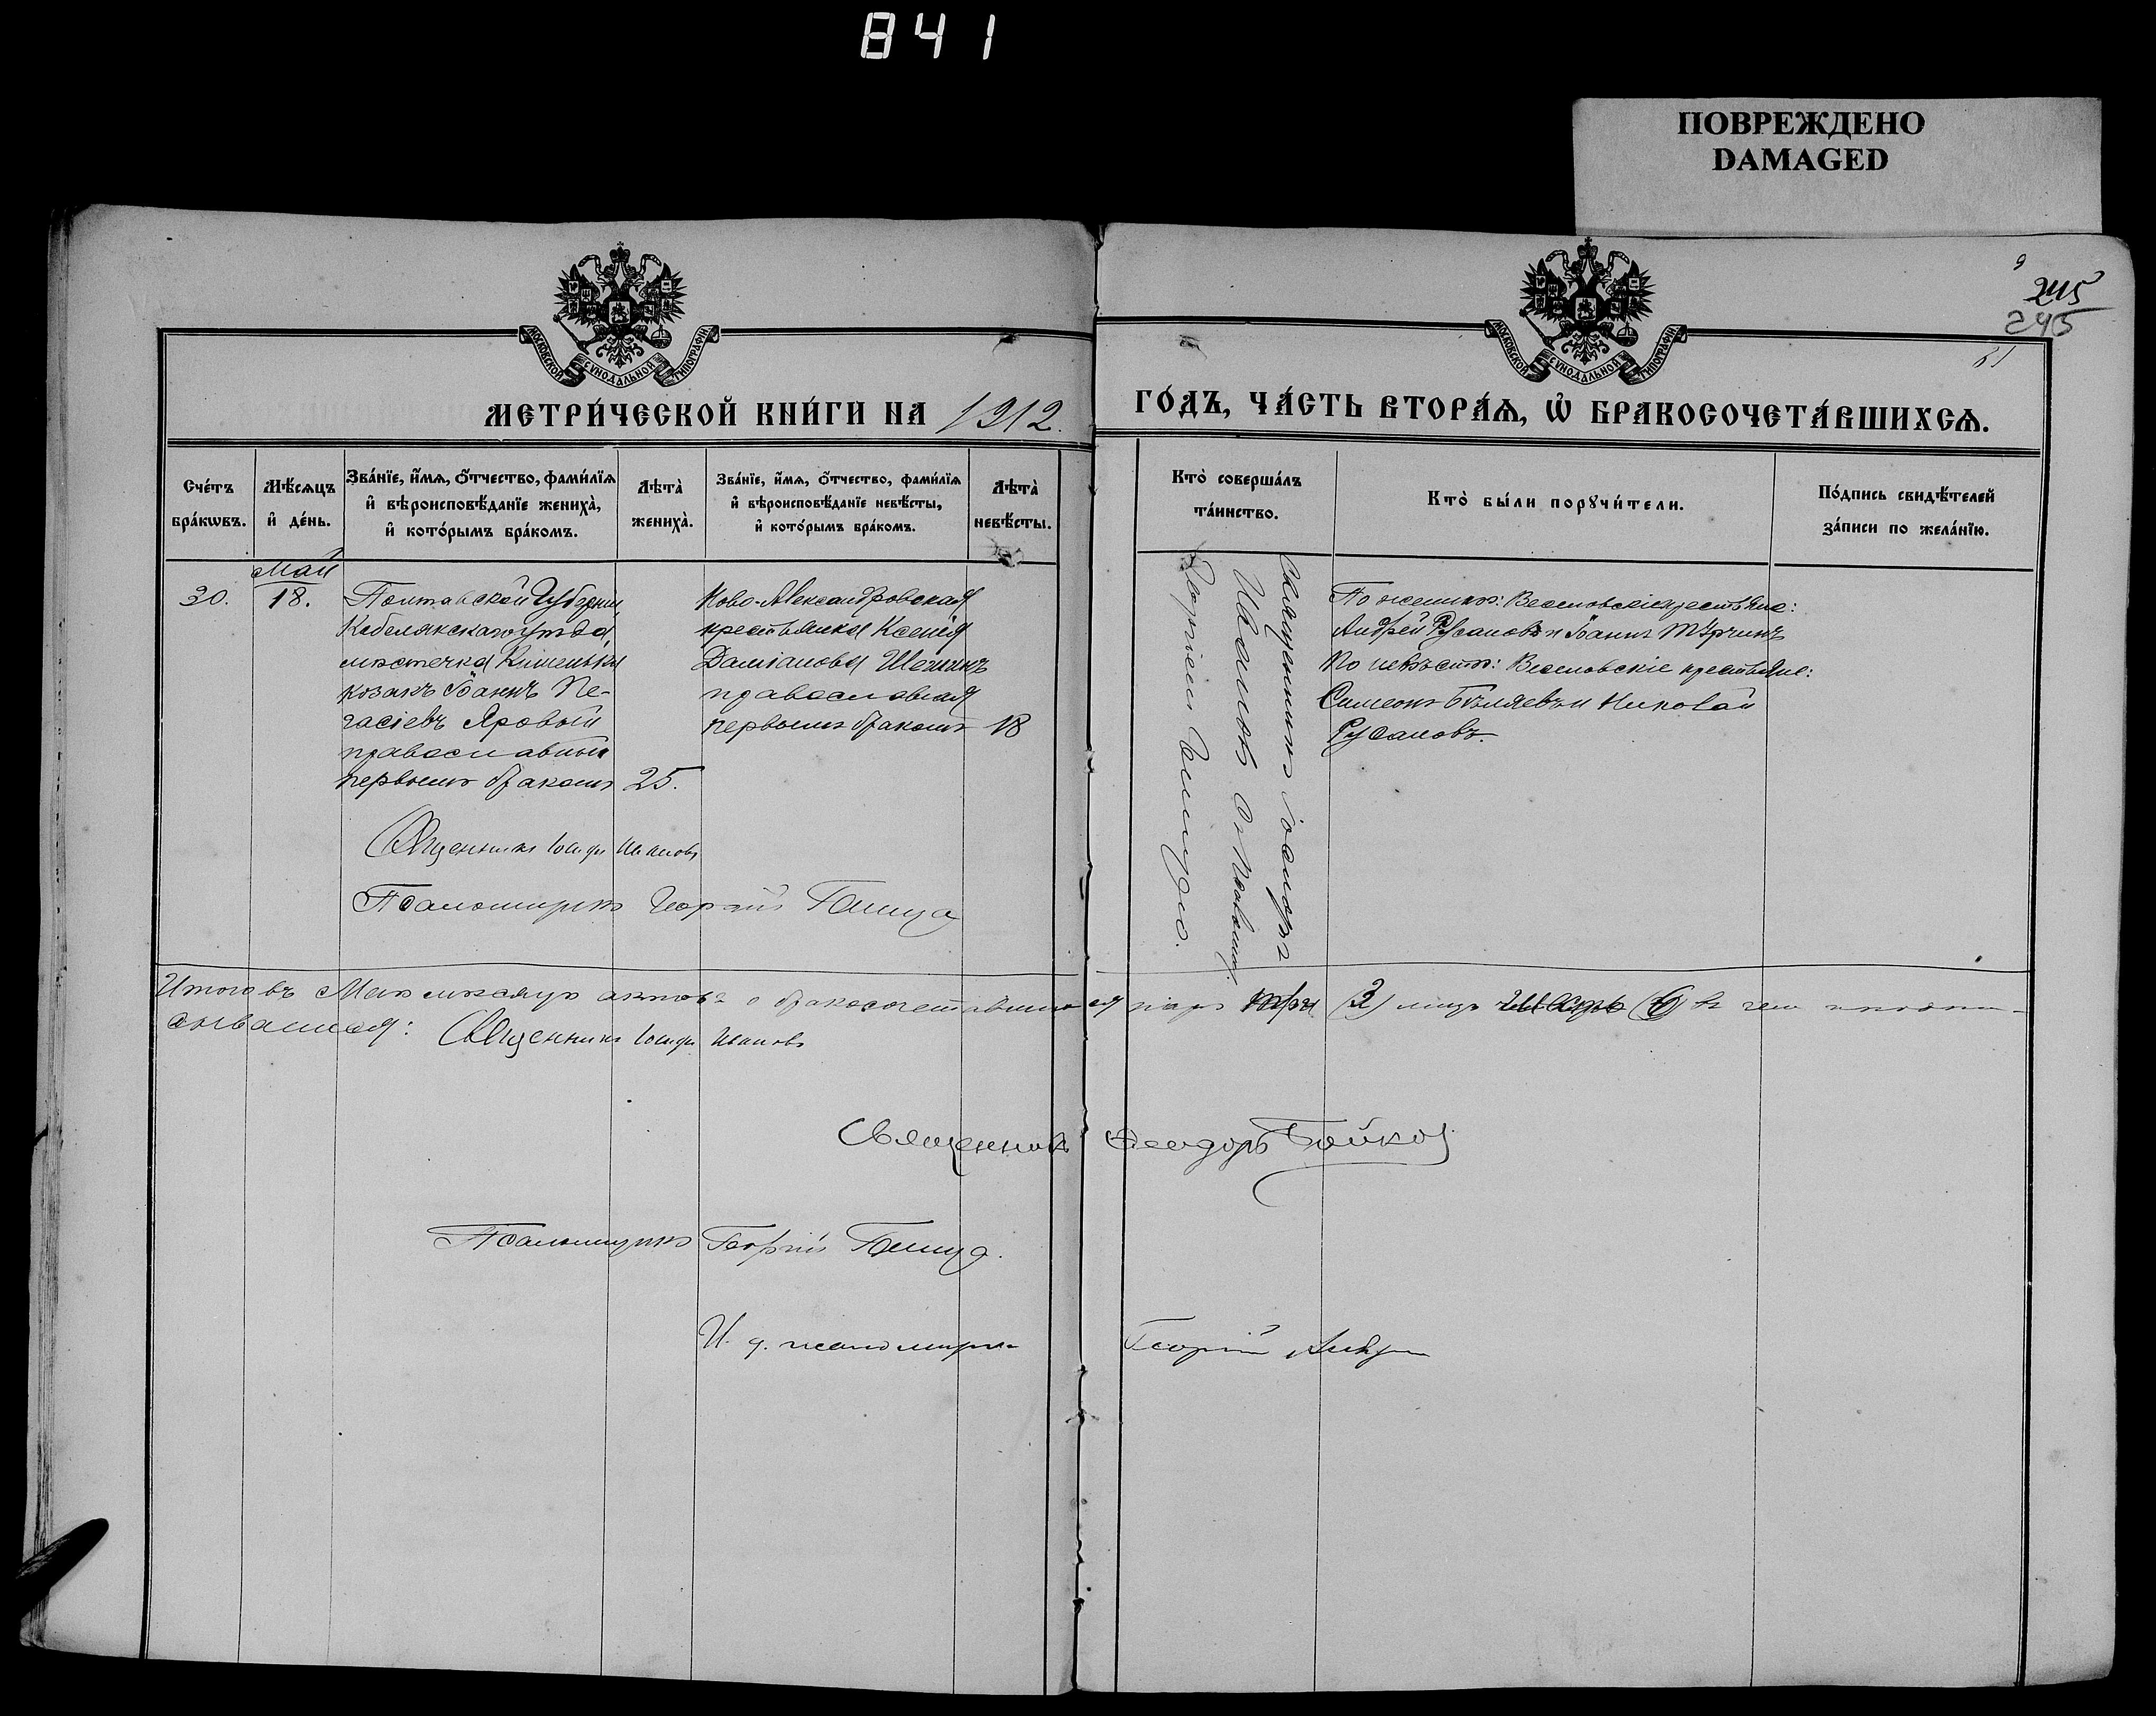 841
ПОВРЕЖДЕНО
DAMAGED
245
245
61
МОСКОВСКОЙ СѴНОДАЛЬНОЙ ТИПОГРАФІИ
МОСКОВСКОЙ СѴНОДАЛЬНОЙ ТИПОГРАФІИ
МЕТРИ́ЧЕСКОЙ КНИ́ГИ НА 1912.
ГО́ДЪ, ЧА́СТЬ ВТОРА́Ѧ, Ѡ҆ БРАКОСОЧЕТА́ВШИХСѦ.
Сче́тъ
бра́кѡвъ.
Мѣ́сѧцъ
и҆ де́нь.
Зва́нїе, и҆́мѧ, ѻ҆́тчество, фами́лїѧ
и҆ вѣроисповѣ́данїе жениха̀,
и҆ кото́рымъ бра́комъ.
Лѣта̀
жениха̀.
Зва́нїе, и҆́мѧ, ѻ҆́тчество, фами́лїѧ
и҆ вѣроисповѣ́данїе невѣ́сты,
и҆ кото́рымъ бра́комъ.
Лѣта̀
невѣ́сты.
Кто̀ соверша́лъ
та́инство.
Кто̀ бы́ли порꙋчи́тели.
По́дпись свидѣ́телей
за́писи по жела́нїю.
30.
Май
18.
Полтавской Губерніи
Кобелякскаго уѣзда,
мѣстечка Кишеньки
козакъ Іоаннъ Пе-
гасіевъ Яровый
православный
первымъ бракомъ
25.
Ново-Александровская
крестьянка Ксенія
Даміанова
православная
первымъ бракомъ
18
Священникъ Іосифъ
Ивановъ съ Псаломщ.
Георгіемъ
По женихѣ: Веселовскіе крестьяне:
Андрей Русановъ и Іоаннъ
По невѣстѣ: Веселовскіе крестьяне:
Симеонъ Бѣляевъ и Николай
Русановъ.
Священникъ Іосифъ Ивановъ
Псаломщикъ Георгій
Итого въ Маѣ мѣсяцѣ актовъ о бракосочетавшихся паръ три (3) лицъ шесть (6) въ чемъ и подпи-
сываемся: Священникъ Іосифъ Ивановъ
Священникъ Ѳеодоръ Бойко
Псаломщикъ Георгій
И. д. псаломщика Георгій